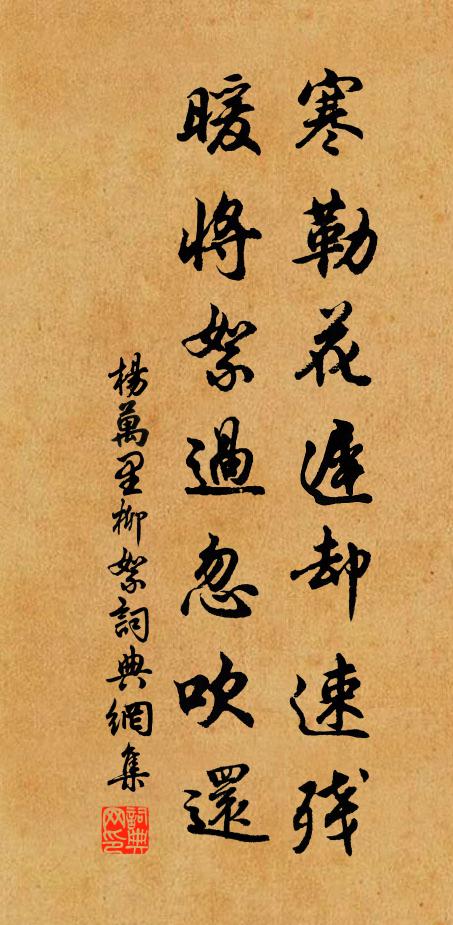 寒勒花遲却速残
暖將絮過忽吹還
楊萬里柳絮詞典網集
詞典網印